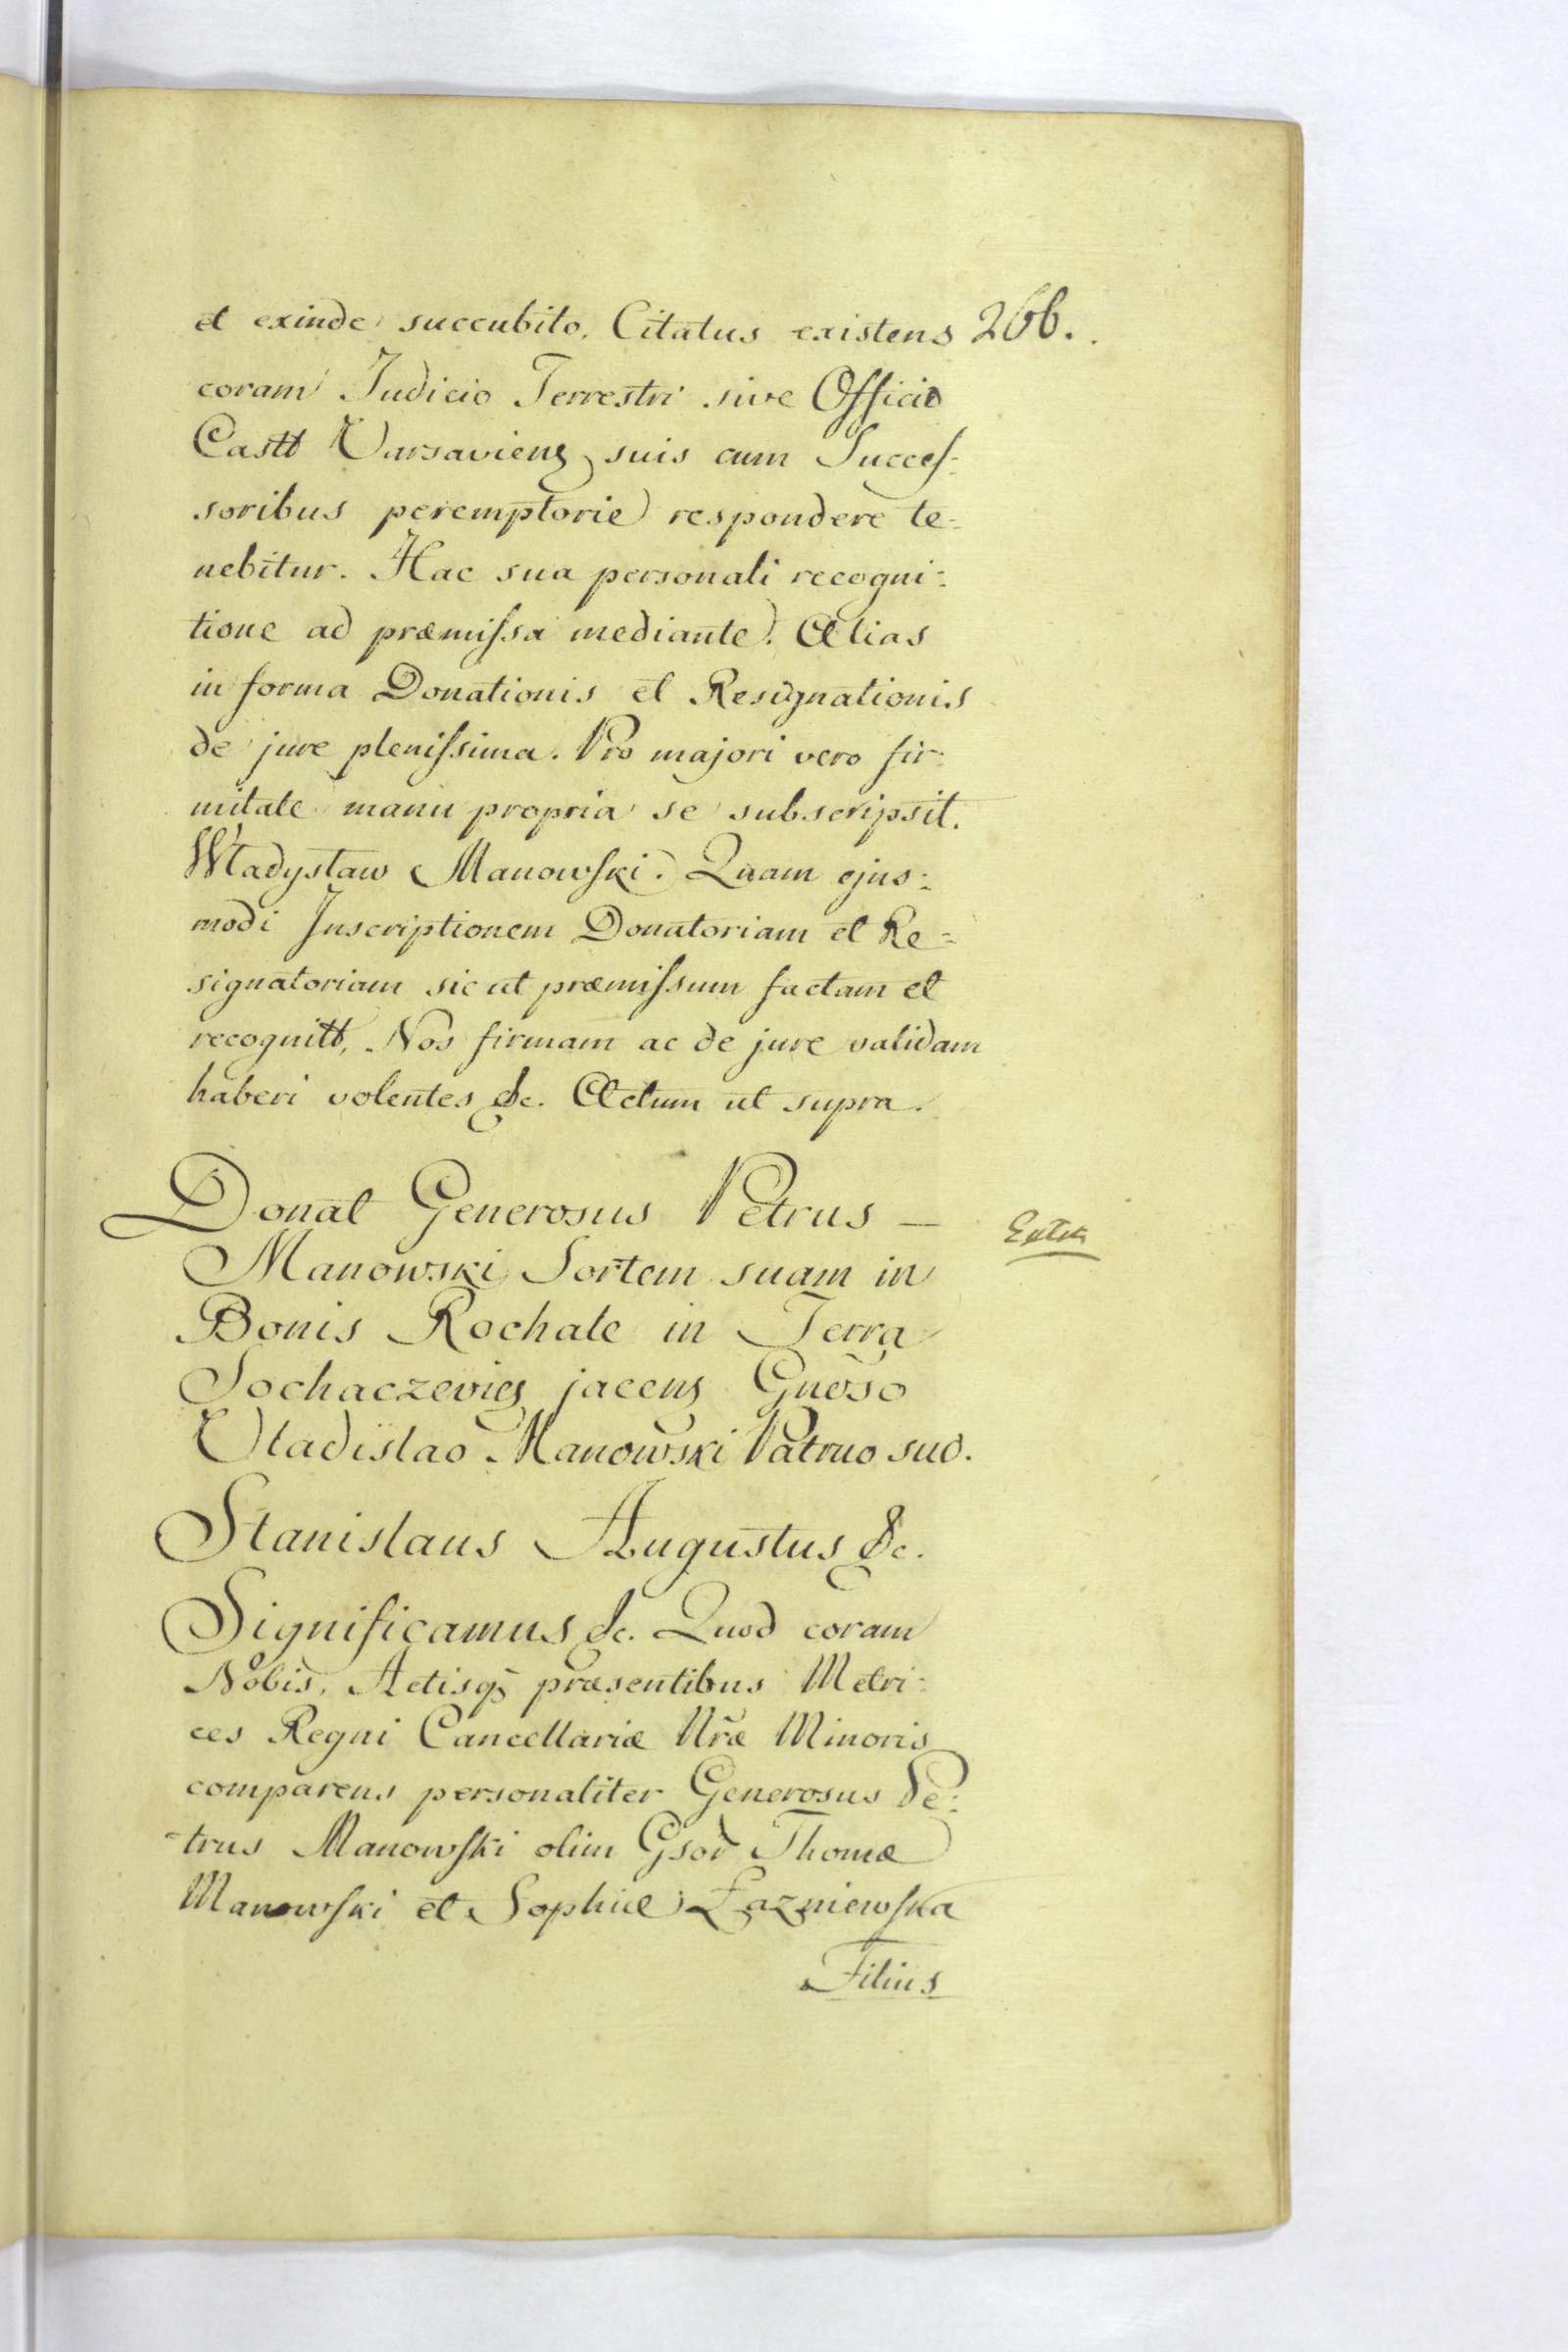 et exinde succubito. Citatus existens 266.
coram Judicio Terrestri sive Officio
Castt Varsaviens suis cum Succes-
soribus peremptorie respondere te-
nebitur. Hac sua personali recogni-
tione ad præmissa mediante. Alias
in forma Donationis et Resignationis
de jure plenissima. Pro majori vero fir-
mitate manu propria se subscripsit.
Władysław Manowski. Quam ejus-
modi Inscriptionem Donatoriam et Re-
signatoriam sic ut præmissum factam et
recognitt, Nos firmam ac de jure validam
haberi volentes &c. Actum ut supra.
Donat Generosus Petrus —
Manowski Sortem suam in
Bonis Rochale in Terra
Sochaczevies jacens Gnõso
Vladislao Manowski Patruo suo.
Stanislaus Augustus &c.
Significamus &c. Quod coram
Nobis, Actisq3 præsentibus Metri-
ces Regni Cancellariæ Nr̃æ Minoris
comparens personaliter Generosus Pe-
-trus Manowski olim Gsor̃ Thomæ
Manowski et Sophiæ Łazniewska
Filius